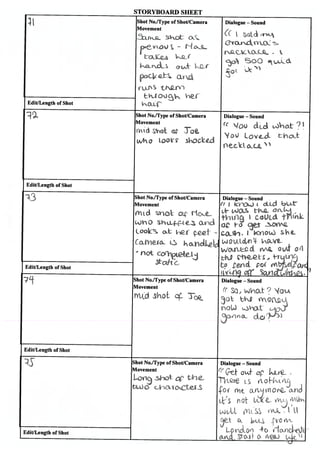 STORYBOARD SHEET
71
Shot No./Type of Shot/Camera
Movement
Same shot as
pervious - Mae
takes her
hands out her
pockets and
runs them
through her
hair
Dialogue – Sound
" I sold my
Grandma's
necklace. I
got 500 quid
for it "
Edit/Length of Shot
72
Shot No./Type of Shot/Camera
Movement
mid shot of Joe
who looks shocked
Dialogue – Sound
" You did what ?!
You loved that
necklace "
Edit/Length of Shot
73
Shot No./Type of Shot/Camera
Movement
mid shot of Mae
who shuffles and
looks at her feet -
camera is handheld
- not completely
static
Dialogue – Sound
" I know I did but
it was the only
thing I could think
of to get some
cash. I know she
wouldn't have
wanted me out on
the streets, trying
to fend for myself and
living off sandwiches. "
Edit/Length of Shot
74
Shot No./Type of Shot/Camera
Movement
mid shot of Joe
Dialogue – Sound
" So, what? You
got this money
now what you
gonna do? "
Edit/Length of Shot
75
Shot No./Type of Shot/Camera
Movement
Long shot of the
two characters
Dialogue – Sound
" Get out of here.
There is nothing
for me anymore and
it's not like my mum
will miss me. I'll
get a bus from
London to Manchester
and start a new life "
Edit/Length of Shot